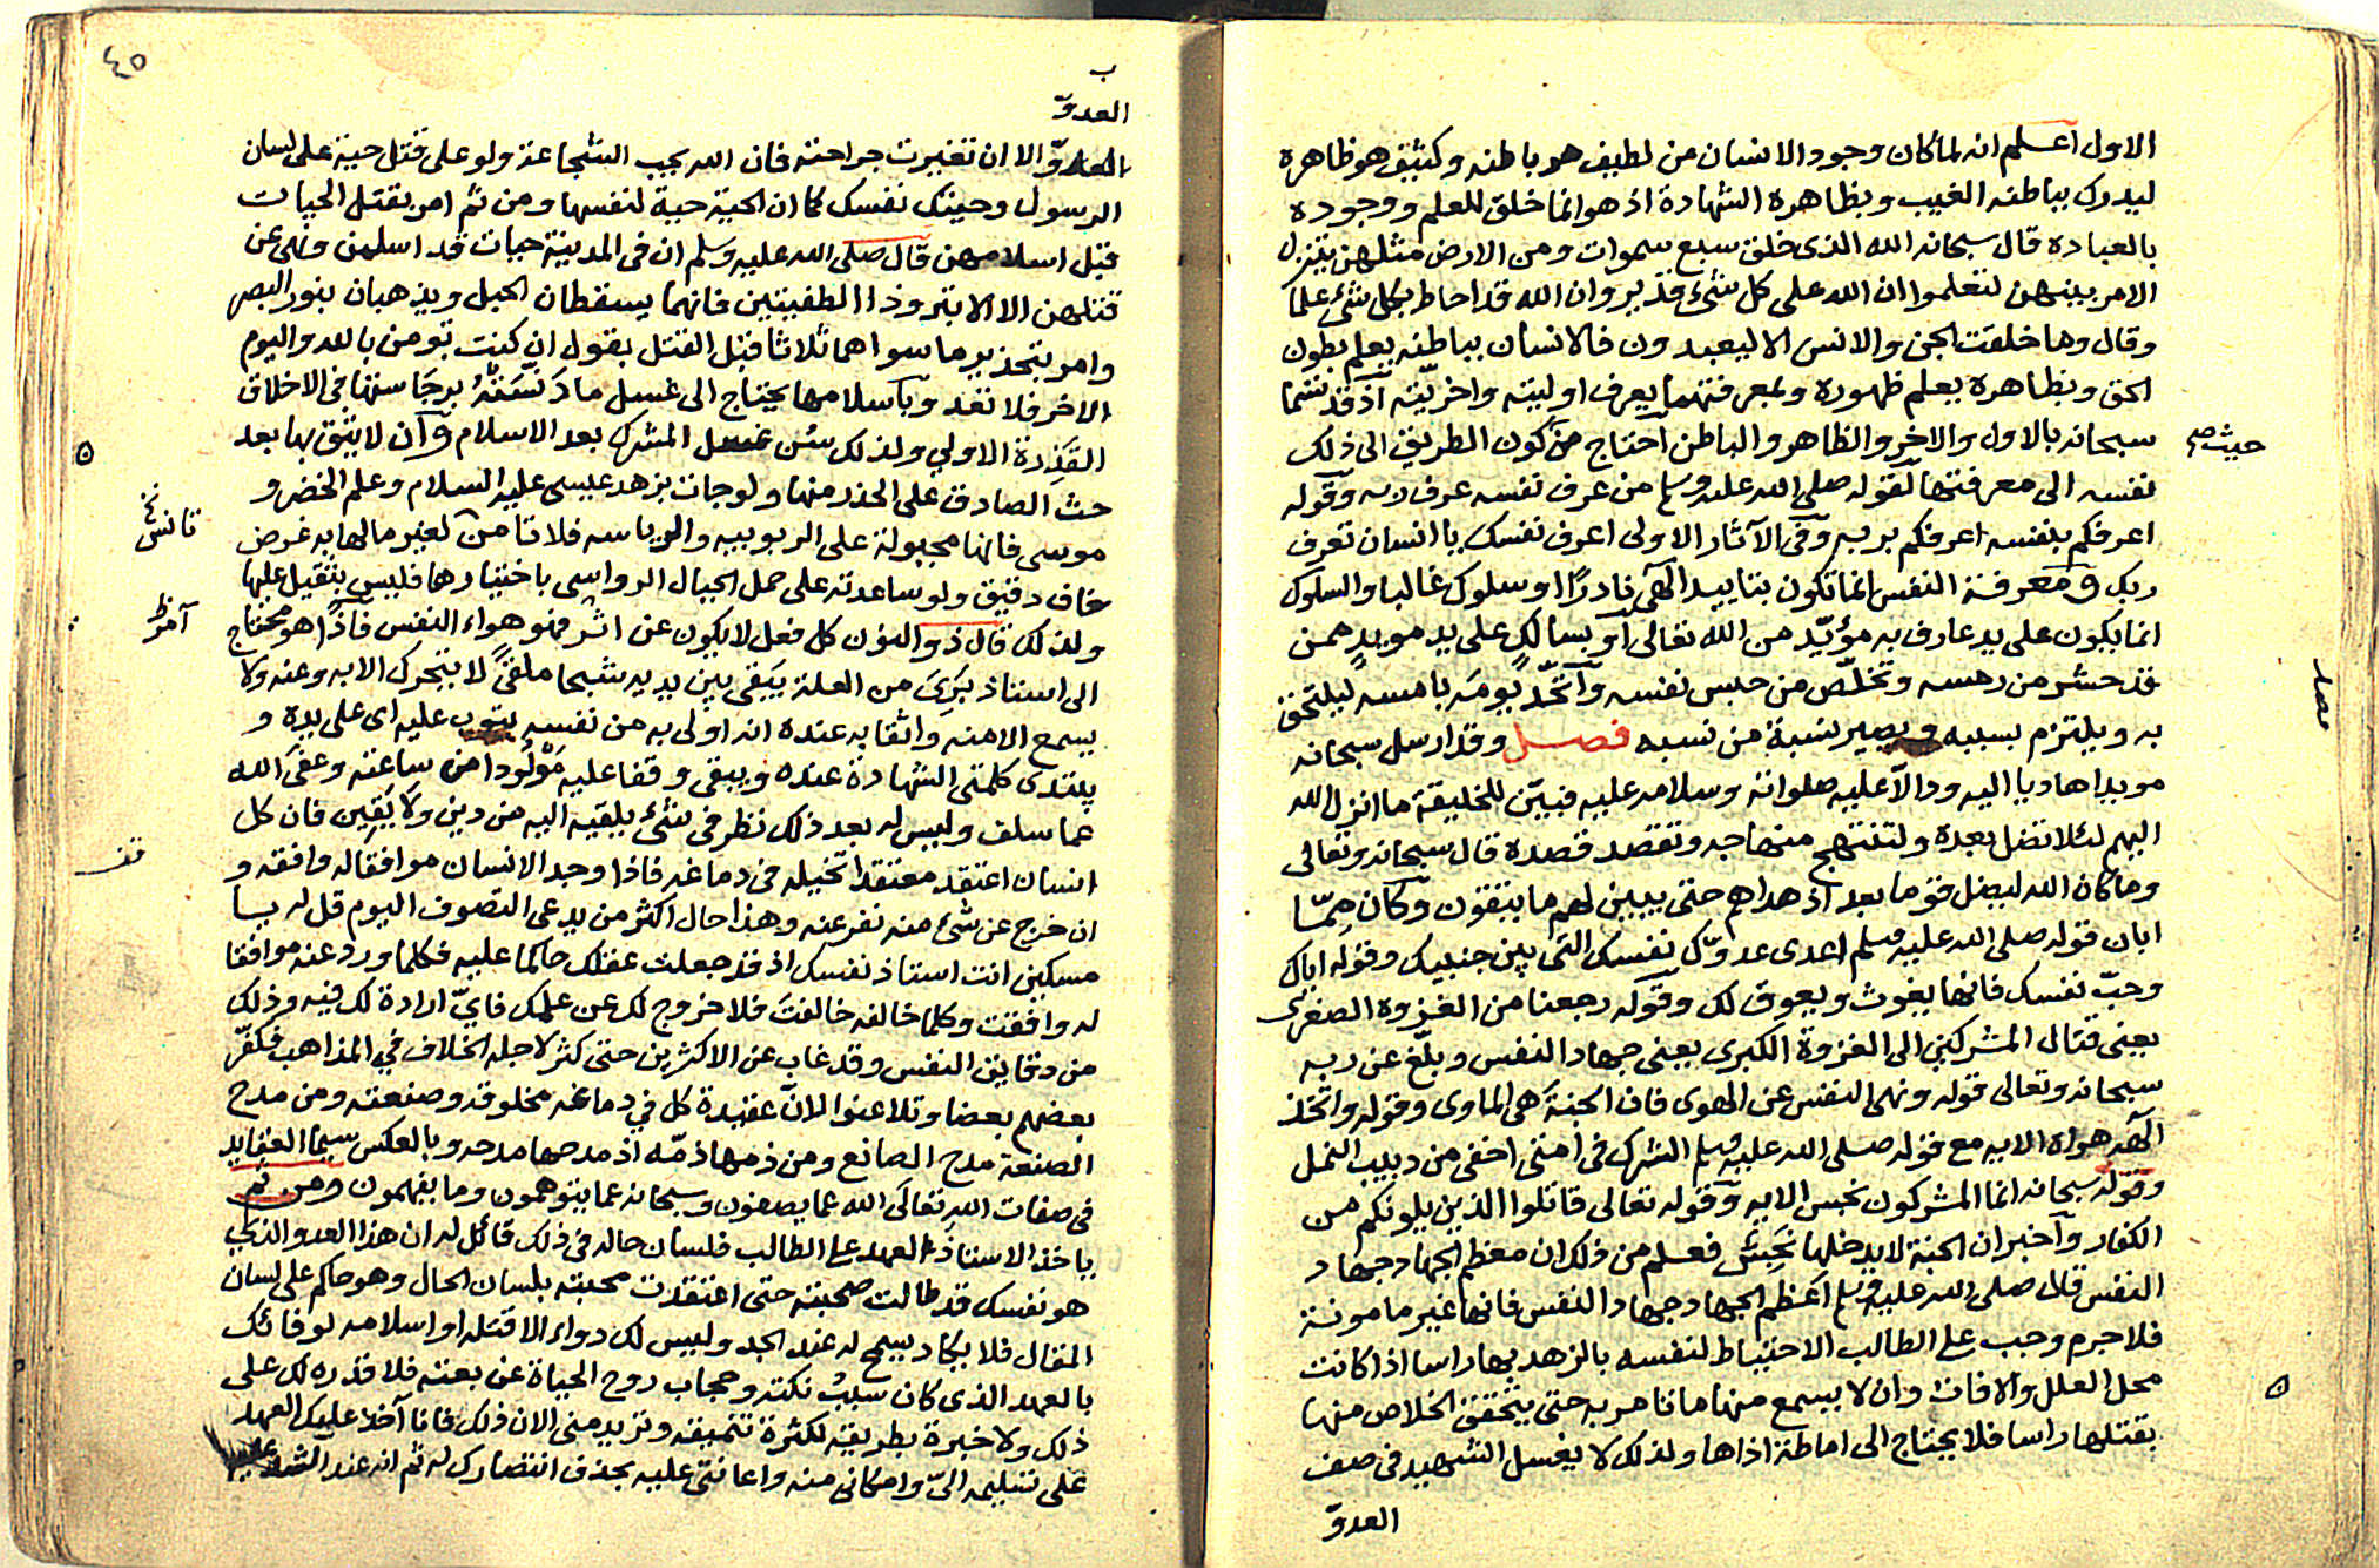 الاول اعلم انه لما كان وجود الانسان من لطيف هو باطنه وكثيف هو ظاهره
ليدرك بباطنه الغيب وبظاهره الشهادة اذ هو انما خلق للعلم ووجوده
بالعبادة قال سبحانه الله الذى خلق سبع سموات ومن الارض مثلهن يتنزل
الامر بينهن لتعلموا ان الله على كل شئ قدير وان الله قد احاط بكل شئ علما
وقال وما خلقت الجن والانس الا ليعبدون فالانسان بباطنه يعلم بطون
الحق وبظاهره يعلم ظهوره وبمعرفتهما يعرف اوليته واخريّته اذ قد تسما
سبحانه بالاول والاخر والظاهر والباطن احتاج من كون الطريق الى ذلك
حيث صح
نفسه الى معرفتها لقوله صلى الله عليه وسلم من عرف نفسه عرف ربه وقوله
اعرفكم بنفسه اعرفكم بربه وفى الآثار الاولى اعرف نفسك يا انسان تعرف
ربك ومعرفة النفس انما تكون بتاييد الهى نادرًا او سلوك غالبا والسلوك
انما يكون على يد عارف به مؤيّد من الله تعالى او بسالك على يد مويد ممن
قد حشر من رمسه وتخلّص من حبس نفسه واتّحد يومه بامسه ليلتحق
به ويلتزم بسببه ويصير نسبة من نسبه فصل وقد ارسل سبحانه
مويدا هاديا اليه ودالّا عليه صلواته وسلامه عليه فبيّن للخليقة ما انزل الله
اليهم لئلا تضل بعده ولتنتهج منهاجه وتقصد قصده قال سبحانه وتعالى
وما كان الله ليضل قوما بعد اذ هداهم حتى يبين لهم ما يتقون وكان ممّا
ابان قوله صلى الله عليه وسلم اعدى عدوّك نفسك التى بين جنبيك وقوله اياك
وحبّ نفسك فانها يغوث ويعوق لك وقوله رجعنا من الغزوة الصغرى
يعنى قتال المشركين الى الغزوة الكبرى يعنى جهاد النفس وبلّغ عن ربه
سبحانه وتعالى قوله ونهى النفس عن الهوى فان الجنة هى الماوى وقوله واتخذ
الهه هواه الايه مع قوله صلى الله عليه وسلم الشرك فى امتى اخفى من دبيب النمل
وقوله سبحانه انما المشركون نجس الايه وقوله تعالى قاتلوا الذين يلونكم من
الكفار واخبر ان الجنة لا يدخلها نجس فعلم من ذلك ان معظم الجهاد جهاد
النفس قال صلى الله عليه وسلم اعظم الجهاد جهاد النفس فانها غير مامونة
فلا جرم وجب على الطالب الاحتياط لنفسه بالزهد بها راسا اذا كانت
محل العلل والافات وان لا يسمع منها ما تامر به حتى يتحقق الخلاص منها
بقتلها راسا فلا يحتاج الى اماطة اذاها ولذلك لا يغسل الشهيد فى صف
العدوّ
٤٥
ب
العدوّ
العدوّ الا ان تغيرت جراحته فان الله يحب الشجاعة ولو على قتل حية على لسان
الرسول وحيتك نفسك كما ان الحية حية لنفسها ومن ثم امر بقتل الحيات
قبل اسلامهن قال صلى الله عليه وسلم ان فى المدينة حيات قد اسلمن ونهى عن
قتلهن الا الابتر وذا الطفيتين فانهما يسقطان الحبل ويذهبان بنور البصر
وامر بتحذير ما سواهما ثلاثا قبل القتل بقول ان كنت تومن بالله واليوم
الاخر فلا تعد وباسلامها يحتاج الى غسل ما دَنَّسَتْهُ برجاستها فى الاخلاق
القذرة الاولى ولذلك سُن غسل المشرك بعد الاسلام وان لا يثق بها بعد
حث الصادق على الحذر منها ولو جات بزهد عيسى عليه السلام وعلم الخضر و
موسى فانها مجبولة على الربوبيه والرياسه فلا تامن لغير مالها به غرض
خاف دقيق ولو ساعدته على حمل الجبال الرواسى باختيارها فليس بثقيل عليها
ولذلك قال ذو النون كل فعل لا يكون عن اثر فهو هواء النفس فاذًا هو محتاج
الى استاذ بَرِىَ من العلة يَبقى بين يديه شبحا ملقىً لا يتحرك الا به وعنه ولا
يسمع الا منه واثقا به عنده انه اولى به من نفسه يتوب عليه اى على يده و
يبتدى كلمتى الشهادة عنده ويبقى وقفا عليه مَوْلُودا من ساعته وعفى الله
عما سلف وليس له بعد ذلك نظر فى شئ يلقيه اليه من دين ولا يَقِين فان كل
انسان اعتقد معتقدا تخيله فى دماغه فاذا وجد الانسان موافقا له وافقه و
ان خرج عن شئ منه نفر عنه وهذا حال اكثر من يدعى التصوف اليوم قل له يا
مسكين انت استاذ نفسك اذ قد جعلت عقلك حاكما عليه فكلما ورد عنه موافقا
له وافقت وكلما خالفه خالفتَ فلا خروج لك عن علمك فاىّ ارادة لك فيه وذلك
من دقايق النفس وقد غاب عن الاكثرين حتى كثر لاجله الخلاف في المذاهب فكفّر
بعضهم بعضا وتلاعنوا لانّ عقيدة كل في دماغه مخلوقه وصنعته ومن مدح
الصنعة مدح الصانع ومن ذمها ذمّه اذ مدحها مدحه وبالعكس سيما العقايد
فى صفات الله تعالى الله عما يصفون وسبحانه عما يتوهمون وما يفهمون ومن ثم
ياخذ الاستاذ العهد على الطالب فلسان حاله فى ذلك قائل له ان هذا العدو الذى
هو نفسك قد طالت صحبته حتى اعتقدت محبته بلسان الحال وهو حاكم على لسان
المقال فلا يكاد يسمح له عند الجد وليس لك دواء الا قتله او اسلامه لوفائك
بالعهد الذى كان سبب نكثه وحجاب روح الحياة عن بعثه فلا قدره لك على
ذلك ولا خبرة بطريقه لكثرة تنميقه وتزيد منى الان ذلك فانا آخذ عليك العهد
على تسليمه الىّ وامكانى منه واعانتى عليه بحذف انتصارك له ثم انه عند